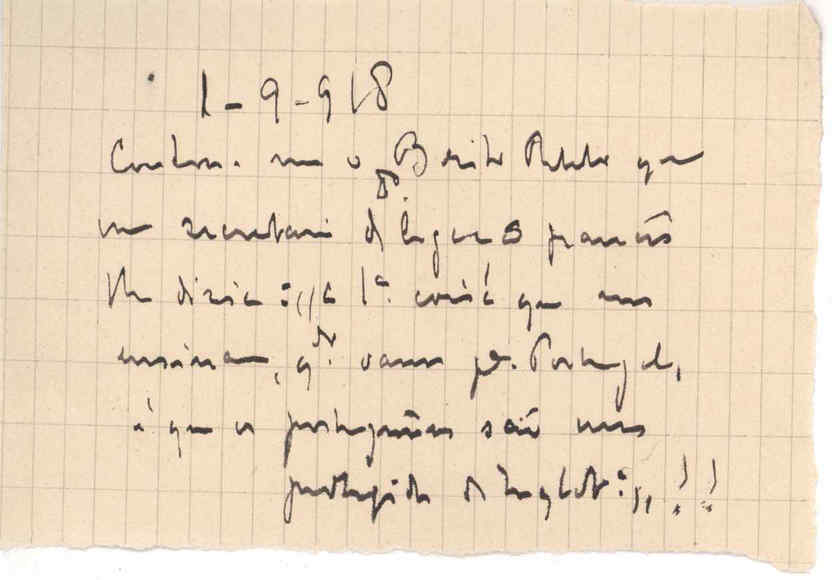 1-9-918
Contou-me o Dr. Brito que
um secretario d legac francês
lhe dizia: "a 1ª coisa que nos
ensinam, qdo vamos pª. Portugal,
é que os portugueses são uns
protegidos d'Inglatª:" !!